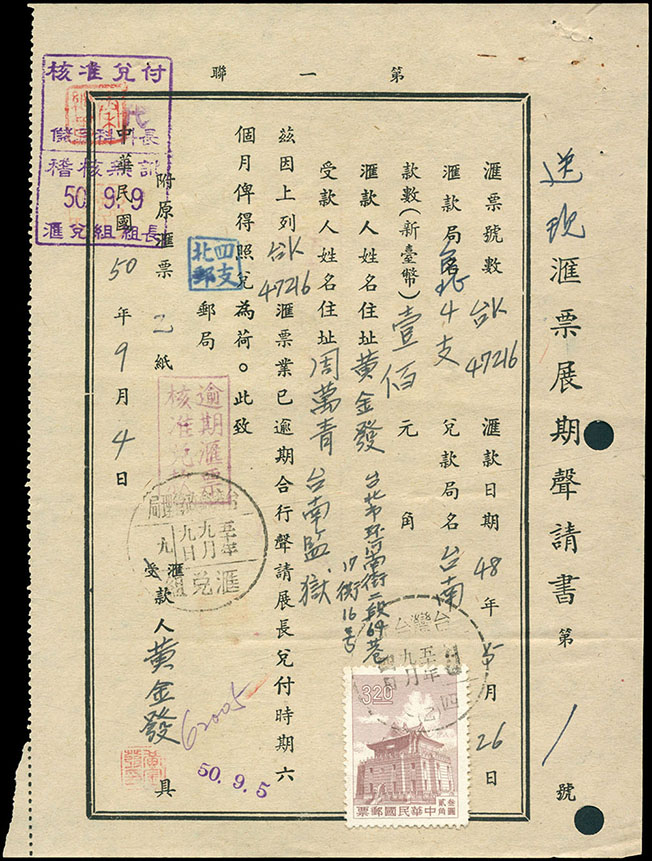 第一聯
送現匯票展期聲請書 第 1 號
匯票號數 台K 47216 匯款日期 48 年 5 月 26 日
匯款局 4支 兌款局名 台南
款數(新臺幣)壹佰 元 角
匯款人姓名住址 黃金發 台北市 街二段64巷
17街16号
受款人姓名住址 周萬青 台南監獄
茲因上列 台K 47216 匯票業已逾期合行聲請展長兌付時期六
個月俾得照兌為荷。此致
北四
郵支
郵局
附原匯票 乙 紙
匯
受款人 黃金發 具
中華民國 50 年 9 月 4 日
核准兌付
代
儲 科科長
稽核
50. 9. 9
匯兌組組長
逾期匯票
核准兌
管理局
五十年
九月
九日
九
匯兌組
台灣台
五十年
九月
四
乙
62005
50. 9. 5
3.20
叁圓
貳角
中華民國郵票